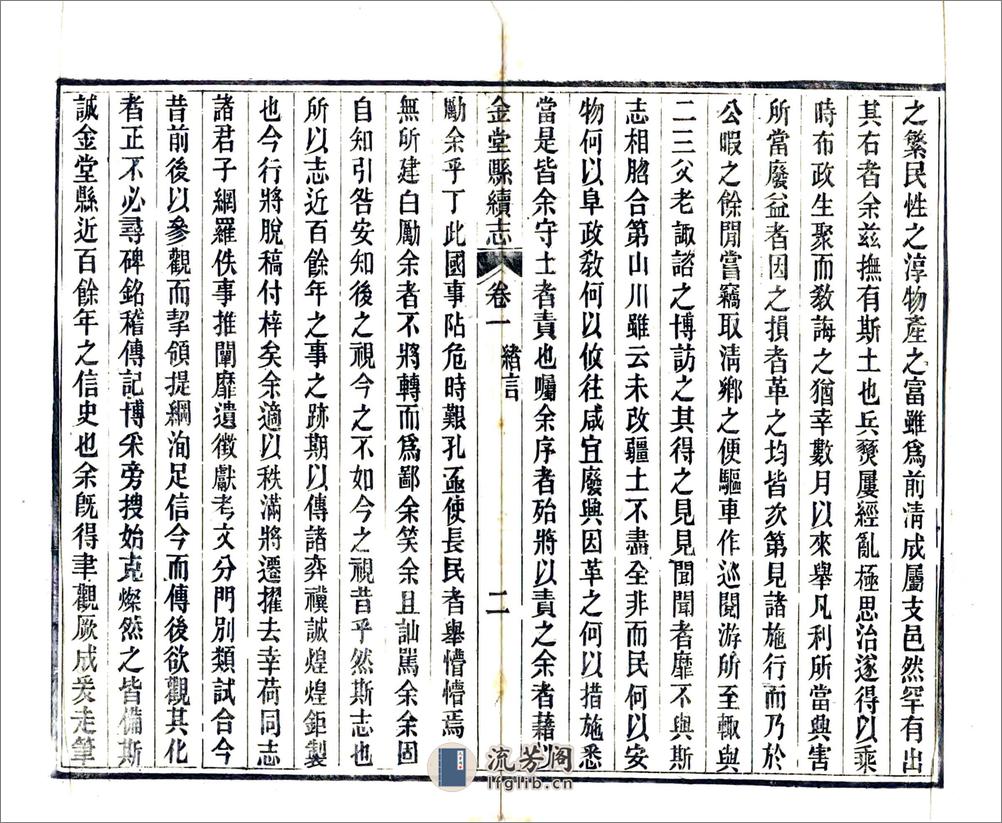 之繁民性之淳物產之富雖爲前清成屬支邑然罕有出
其右者余茲撫有斯土也兵燹屢經亂極思治遂得以乘
時布政生聚而敎誨之猶幸數月以來舉凡利所當興害
所當廢益者因之損者革之均皆次第見諸施行而乃於
公暇之餘閒嘗竊取清鄉之便驅車作巡閱游所至輒與
二三父老諏諮之博訪之其得之見見聞聞者靡不與斯
志相脗合第山川雖云未改疆土不盡全非而民何以安
物何以阜政敎何以攸往咸宜廢興因革之何以措施悉
當是皆余守土者責也囑余序者殆將以責之余者藉以
金堂縣續志 卷一 緒言 二
勵余乎丁此國事阽危時艱孔亟使長民者舉懵懵焉
無所建白勵余者不將轉而爲鄙余笑余且訕罵余余固
自知引咎安知後之視今之不如今之視昔乎然斯志也
所以志近百餘年之事之跡期以傳諸弈禩誠煌煌鉅製
也今行將脫稿付梓矣余適以秩滿將遷擢去幸荷同志
諸君子網羅佚事推闡靡遺徵獻考文分門別類試合今
昔前後以參觀而挈領提綱洵足信今而傳後欲觀其化
者正不必尋碑銘稽傳記博采旁搜始克燦然之皆備斯
誠金堂縣近百餘年之信史也余旣得聿觀厥成爰走筆
流芳阁
lfglib.cn